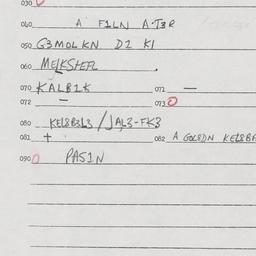 030
040 A F1LN A·T3R
050 G3MOLKN D2 K1
060 MELKSHEFL
070 KALB1K 071 —
072 — 073 0
080 KEL8B3L3 / JAL3-FK3
081 + 082 A GOLSDN KEL8BF
090 0 PAS1N